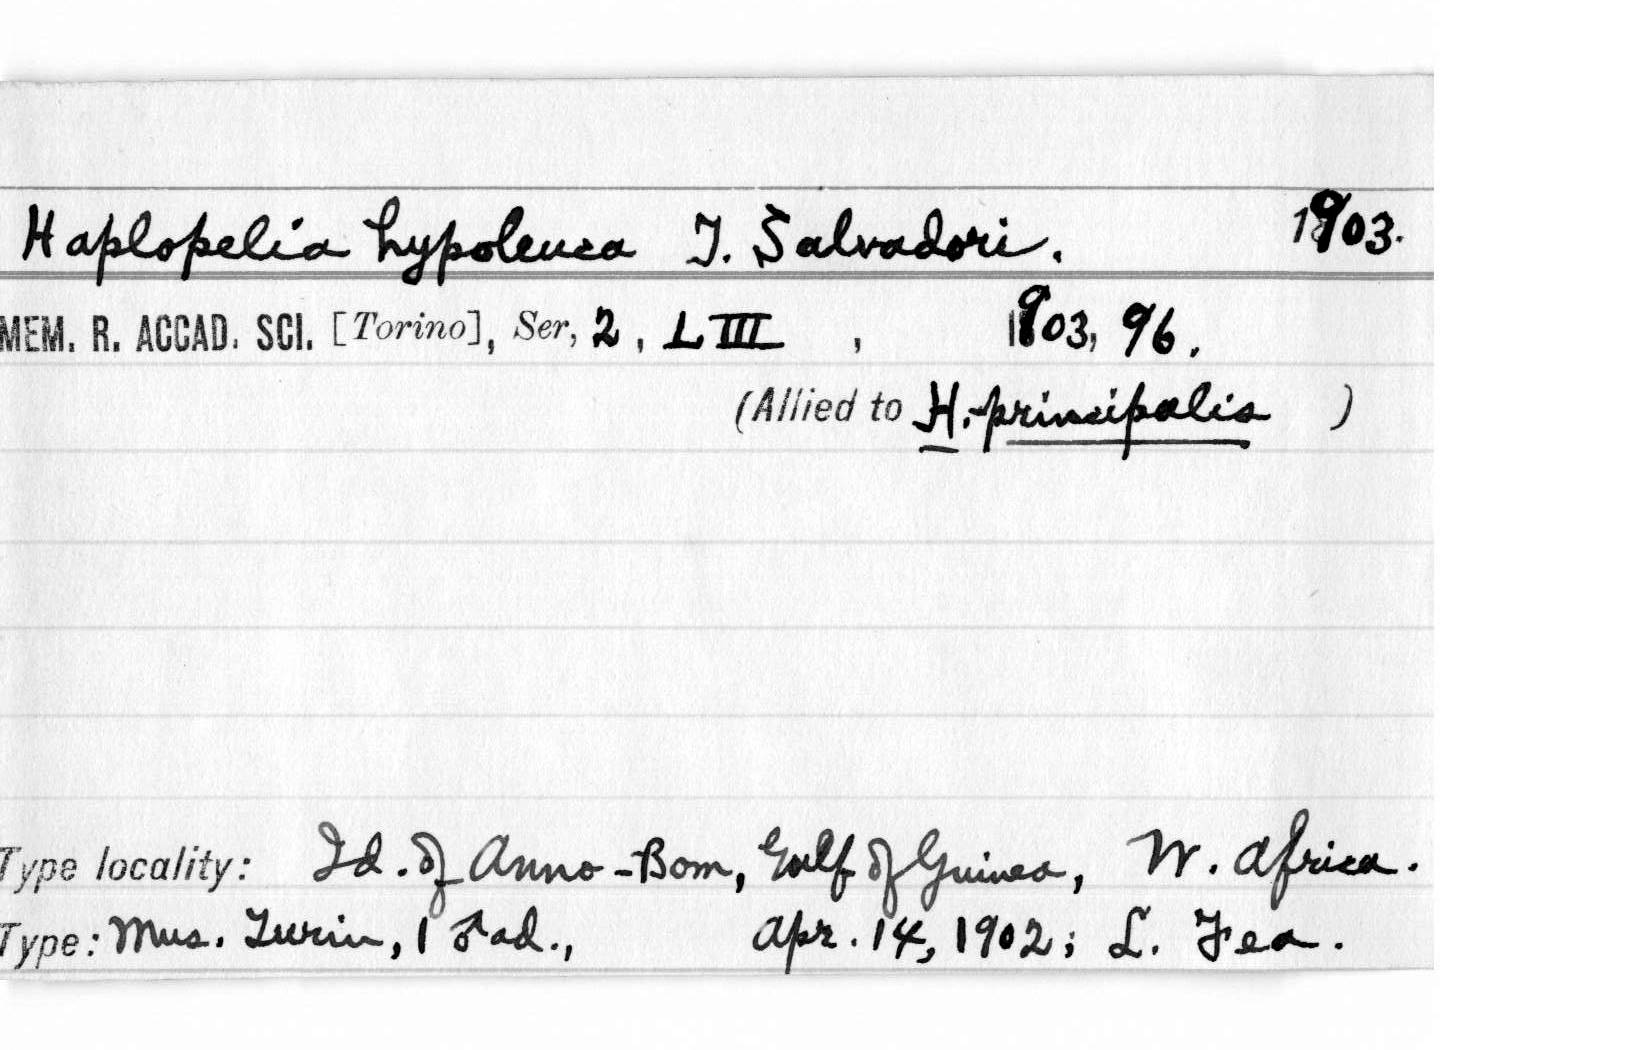 Haplopelia hypoleuca T. Salvadori. 1903.
MEM. R. ACCAD. SCI. [Torino], Ser, 2, LIII , 1903, 96.
(Allied to H. principalis )
Type locality: Id. of Anno-Bom, Gulf of Guinea, W. Africa.
Type: Mus. Turin, 1 ♂ ad., Apr. 14, 1902; L. Fea.